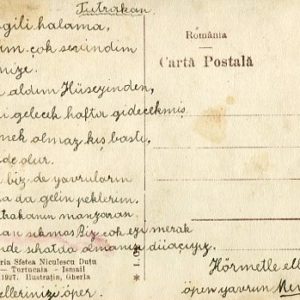 Tutrakan.
gili halama,
im çok sevindim
nize.
aldım Hüseyinden,
i gelecek hafta gidecekmiş
mek olmaz kış bastı,
de olur.
biz de yavruların
a da gelin peklerim.
trakanın manzarası
an sıkması Biz çok eyi merak
nde sıhatda olmanızı
ellerinizi öper
România
Cartă Postală
ria Sfetea Niculescu Duțu
— Turtucaia — Ismail
1927. Ilustratin, Gherla
Hörmetle ell
öpen yavrun